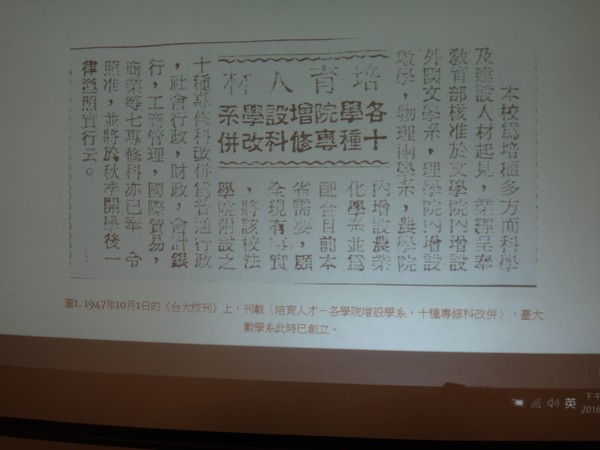 培育人材
各學院增設學系
十種專修科改併
本校為培植多方面科學
及建設人材起見，業經呈奉
教育部核准於文學院內增設
外國文學系，理學院內增設
數學，物理兩學系，農學院
內增設農業
化學系並為
配合目前本
省需要，顧
全現有事實
，將該校法
學院附設之
十種專修科改併為普通行政
，社會行政，財政，會計銀
行，工商管理，國際貿易，
商業等七專修科亦已奉　令
照准，並將於秋季開學後一
律遵照實行云。
圖1. 1947年10月1日的《台大校刊》上，刊載〈培育人才－各學院增設學系，十種專修科改併〉，臺大
數學系此時已創立。
英
下午
2016